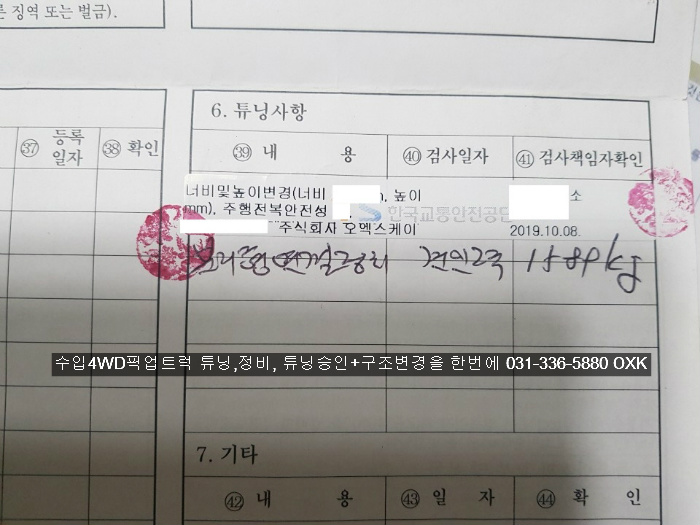 른 징역 또는 벌금).
6. 튜닝사항
㊲ 등록일자 ㊳ 확인
㊴ 내 용 ㊵ 검사일자 ㊶ 검사책임자확인
너비및높이변경(너비 m, 높이 소
mm), 주행전복안전성 한국교통안전공단
주식회사 오멕스케이 2019.10.08.
견인고리 1580kg
수입4WD픽업트럭 튜닝,정비, 튜닝승인+구조변경을 한번에 031-336-5880 OXK
7. 기타
㊷ 내 용 ㊸ 일 자 ㊹ 확 인